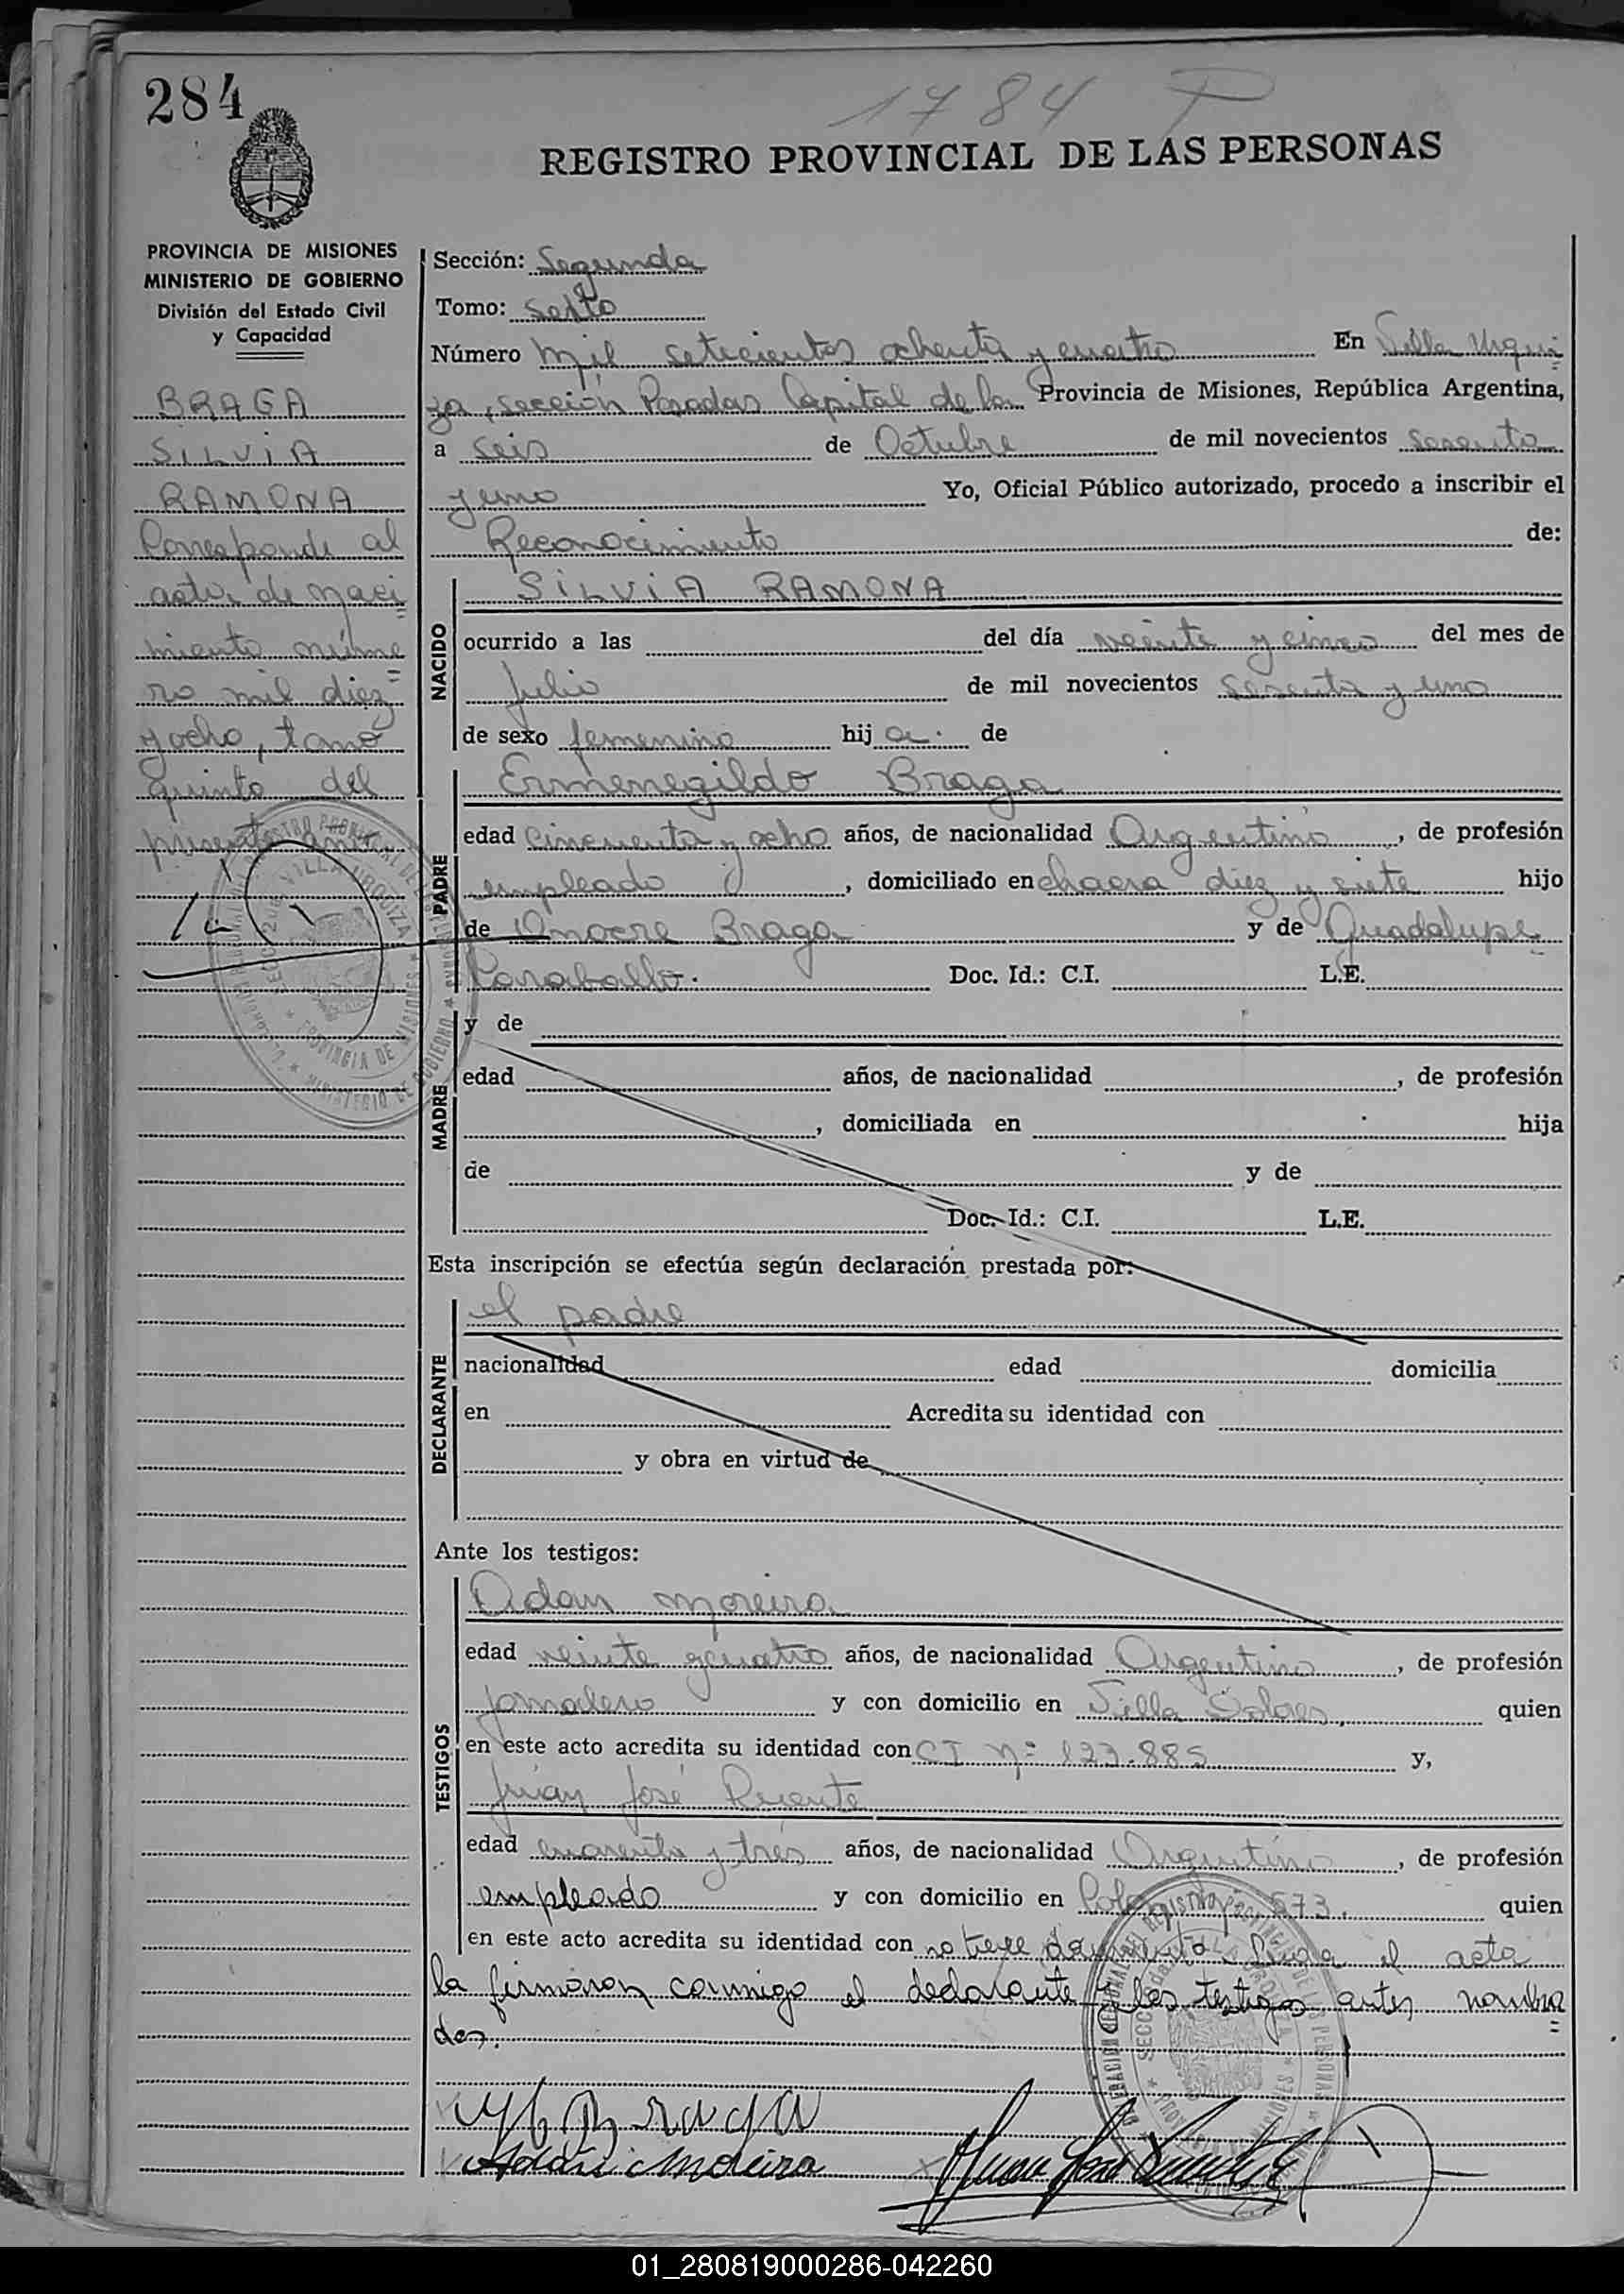 284
1784 T
REGISTRO PROVINCIAL DE LAS PERSONAS
PROVINCIA DE MISIONES
MINISTERIO DE GOBIERNO
División del Estado Civil
y Capacidad
BRAGA
SILVIA
RAMONA
Corresponde al
acta de naci
miento núme=
ro mil diez
y ocho, tomo
quinto del
presente
Sección: Segunda
Tomo: Sexto
Número mil setecientos ochenta y cuatro En Villa Urqui=
za, sección Posadas Capital de la Provincia de Misiones, República Argentina,
a seis de Octubre de mil novecientos sesenta
y uno Yo, Oficial Público autorizado, procedo a inscribir el
Reconocimiento de:
NACIDO
SILVIA RAMONA
ocurrido a las del día veinte y cinco del mes de
Julio de mil novecientos sesenta y uno
de sexo femenino hij a. de
PADRE
Ermenegildo Braga
edad cincuenta y ocho años, de nacionalidad Argentino, de profesión
empleado, domiciliado en chacra diez y siete hijo
de Onocre Braga y de Guadalupe
Caraballo. Doc. Id.: C.I. L.E.
MADRE
y de
edad años, de nacionalidad , de profesión
, domiciliada en hija
de y de
Doc. Id.: C.I. L.E.
Esta inscripción se efectúa según declaración prestada por:
DECLARANTE
el padre
nacionalidad edad domicilia
en Acredita su identidad con
y obra en virtud de
Ante los testigos:
TESTIGOS
Adan Moreira
edad veinte y cuatro años, de nacionalidad Argentino, de profesión
jornalero y con domicilio en Villa Dolores, quien
en este acto acredita su identidad con CI Nº 127.885 y,
Juan José Puente
edad cuarenta y tres años, de nacionalidad Argentino, de profesión
empleado y con domicilio en 573. quien
en este acto acredita su identidad con no tiene documento. Leida el acta
la firmaron conmigo el declarante y los testigos antes nombra=
dos.
Braga
Adan Moreira
Juan José Puente
01_280819000286-042260